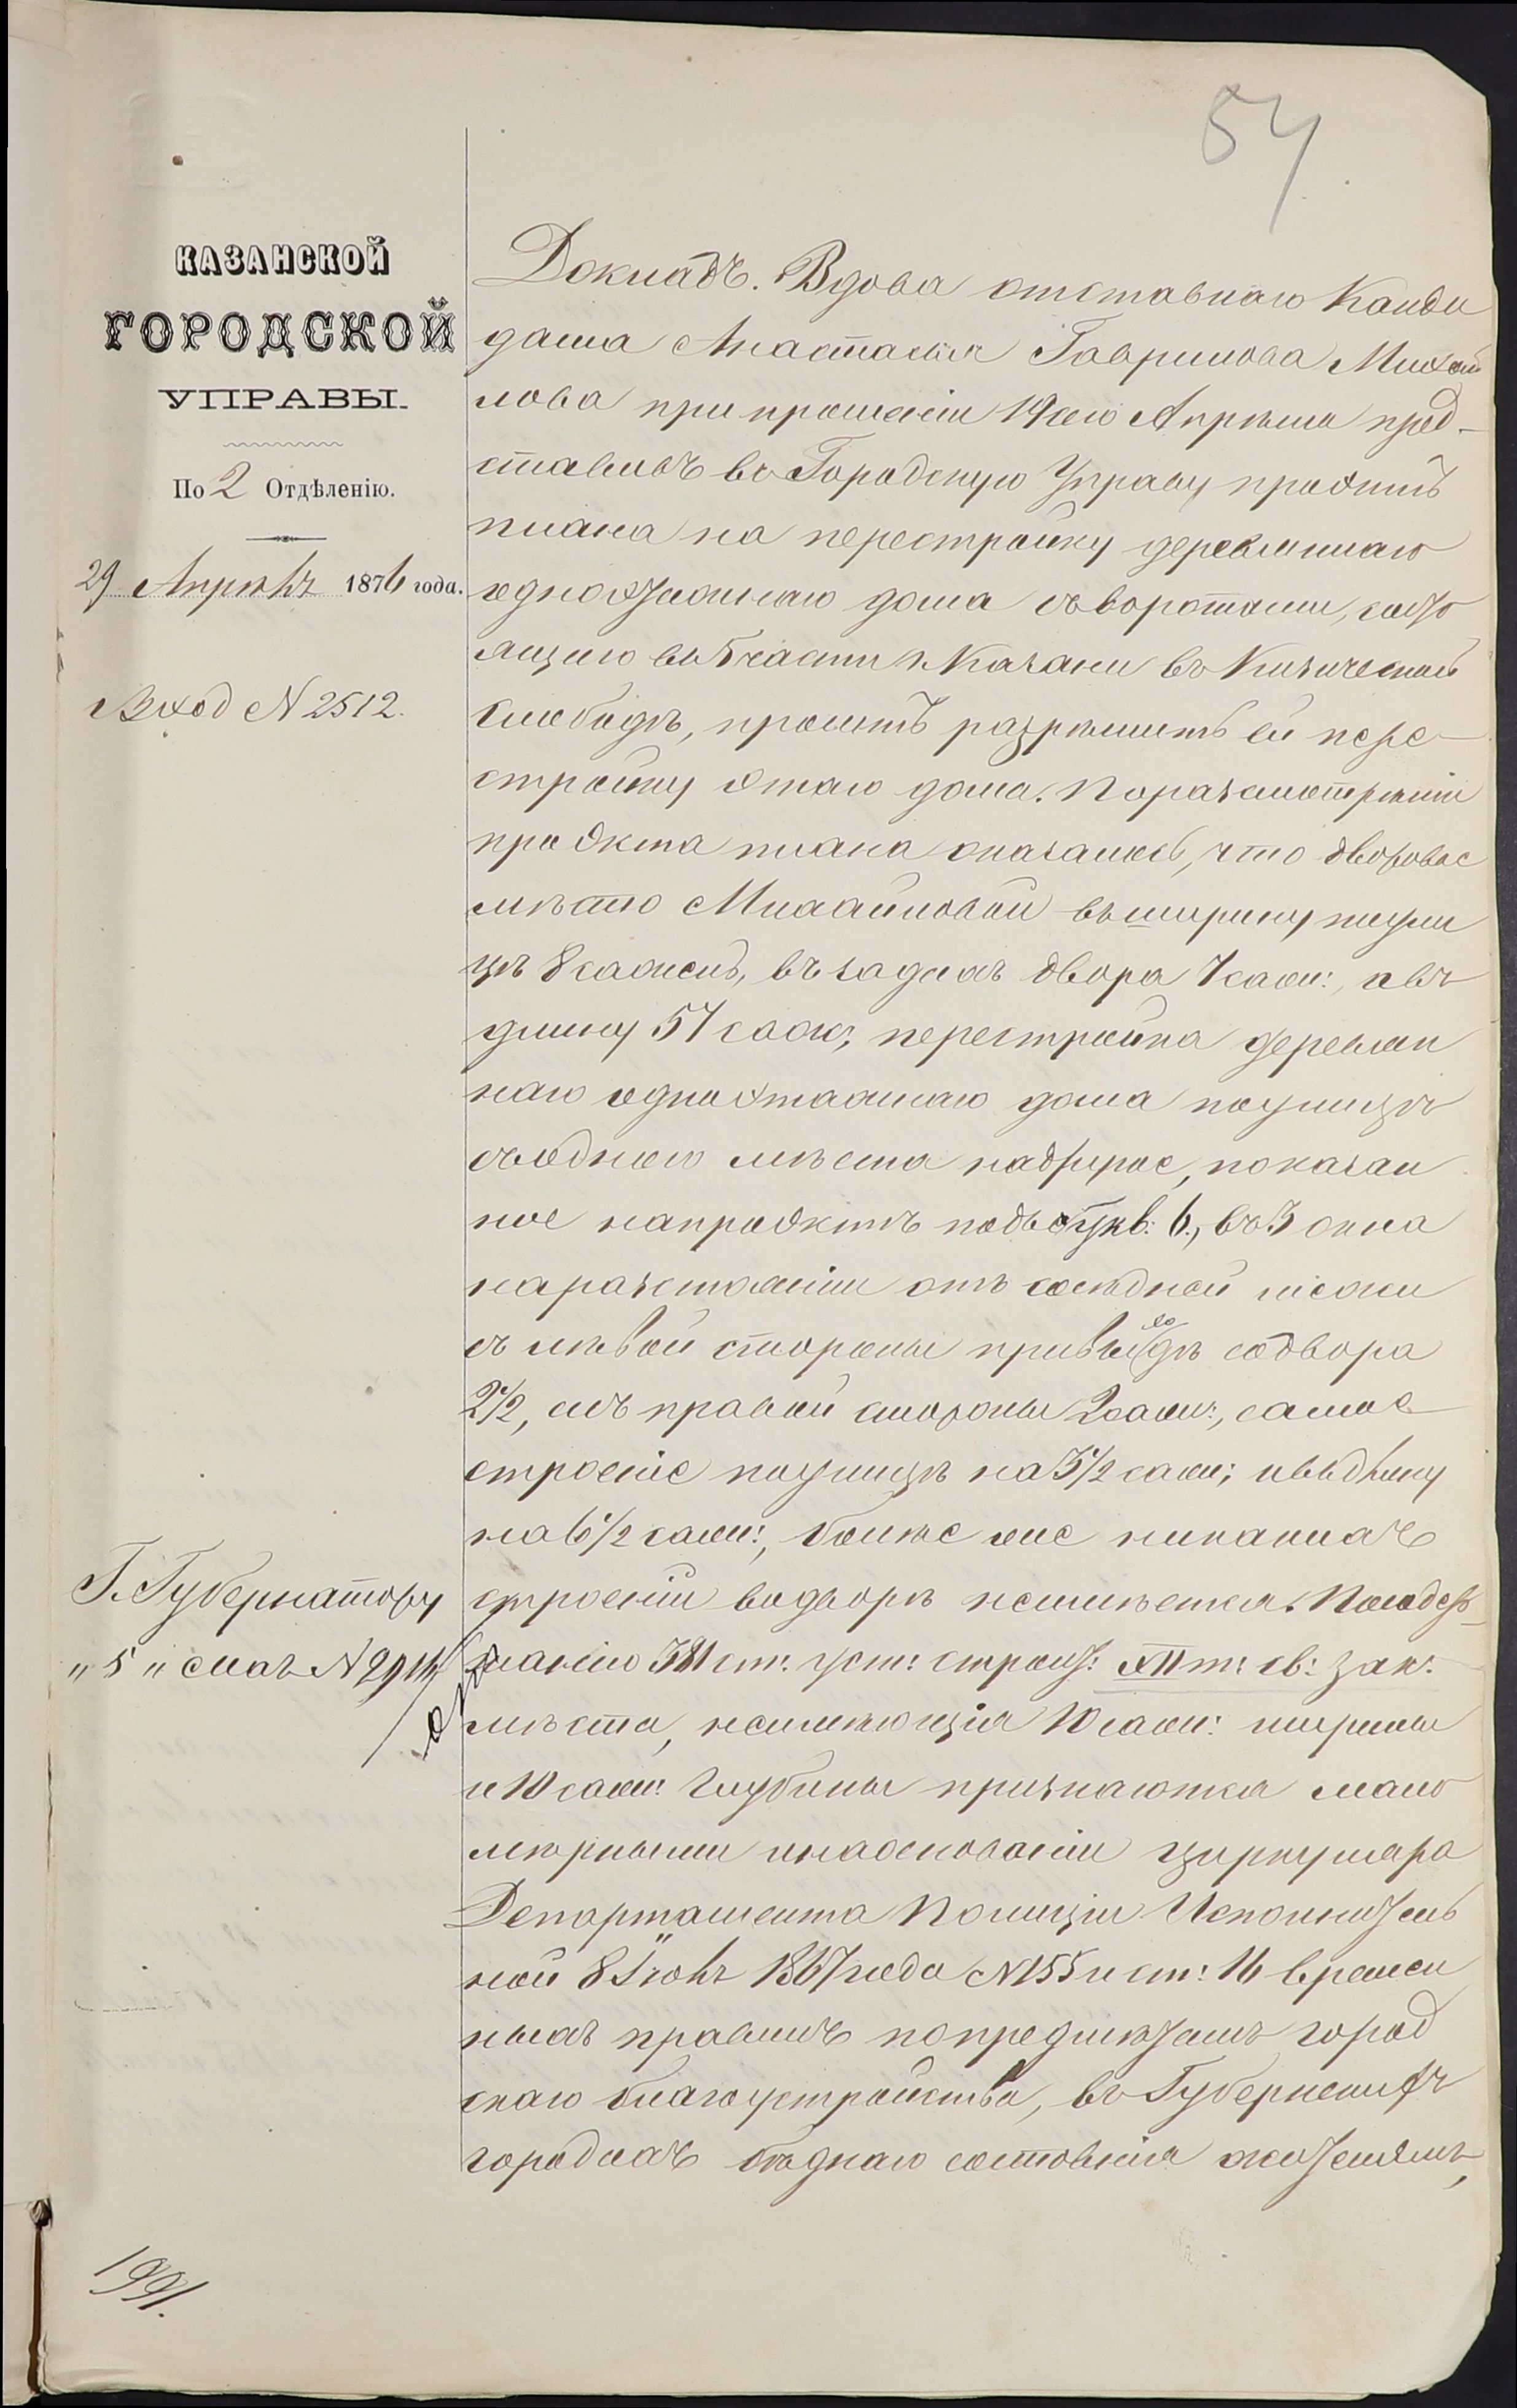 54
КАЗАНСКОЙ
ГОРОДСКОЙ
УПРАВЫ.
По 2 Отдѣленію.
29 Апрѣль 1876 года.
Вход N 2512.
Г. Губернатору
„5„ мая N
1991.
Докладъ. Вдова отставнаго Канди
дата Анастасья Гаврилова Михай
лова при прошеніи 19сего Апрѣля пред-
ставивъ въ Городскую Управу проэктъ
плана на перестройку деревяннаго
одноэтажнаго дома съ воротами, состо
ящаго въ 5 части г. Казани въ Кизической
слободѣ, проситъ разрѣшить ей пере-
стройку этаго дома. По разсмотрѣніи
проэкта плана оказалось, что дворовое
мѣсто Михайловой въ ширину по ули
цѣ 8 сажень, въ задахъ двора 7 саж:, и въ
длину 57 саж; перестройка деревян
наго одноэтажнаго дома по улицѣ
съ однаго мѣста на другое, показан
ное на проэктѣ подъ букв: б., въ 3 окна
на разстояніи отъ сосѣдней межи
съ лѣвой стороны при въѣздѣ со двора
2½, и съ правой стороны 2 саж:, самое
строеніе по улицѣ на 3½ саж; и въ длину
на 6½ саж:, болѣе же никакихъ
строеній во дворѣ неимѣется. По содер-
жанію 381 ст: уст: строит: XII т: св: зак:
мѣста, неимѣющія 10 саж: ширины
и 10 саж: глубины признаются мало
мѣрными и на основаніи циркуляра
Департамента Полиціи Исполнитель
ной 8 Іюнь 1867 года N 155 и ст: 16 времен
ныхъ правилъ по предметамъ город
скаго благоустройства, въ Губернскихъ
городахъ бѣднаго состоянія жителямъ,